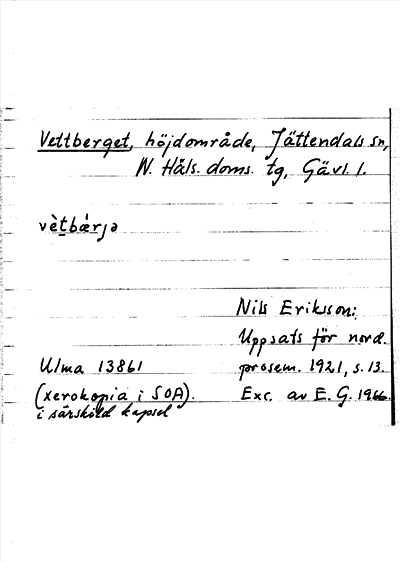 Vettberget, höjdområde, Jättendals sn,
N. Häls. doms. tg, Gävl. l.
vèt̲bǽrjə
Nils Eriksson:
Uppsats för nord.
Ulma 13861 prosem. 1921, s. 13.
(xerokopia i SOA). Exc. av E. G. 1966.
i särskild kapsel